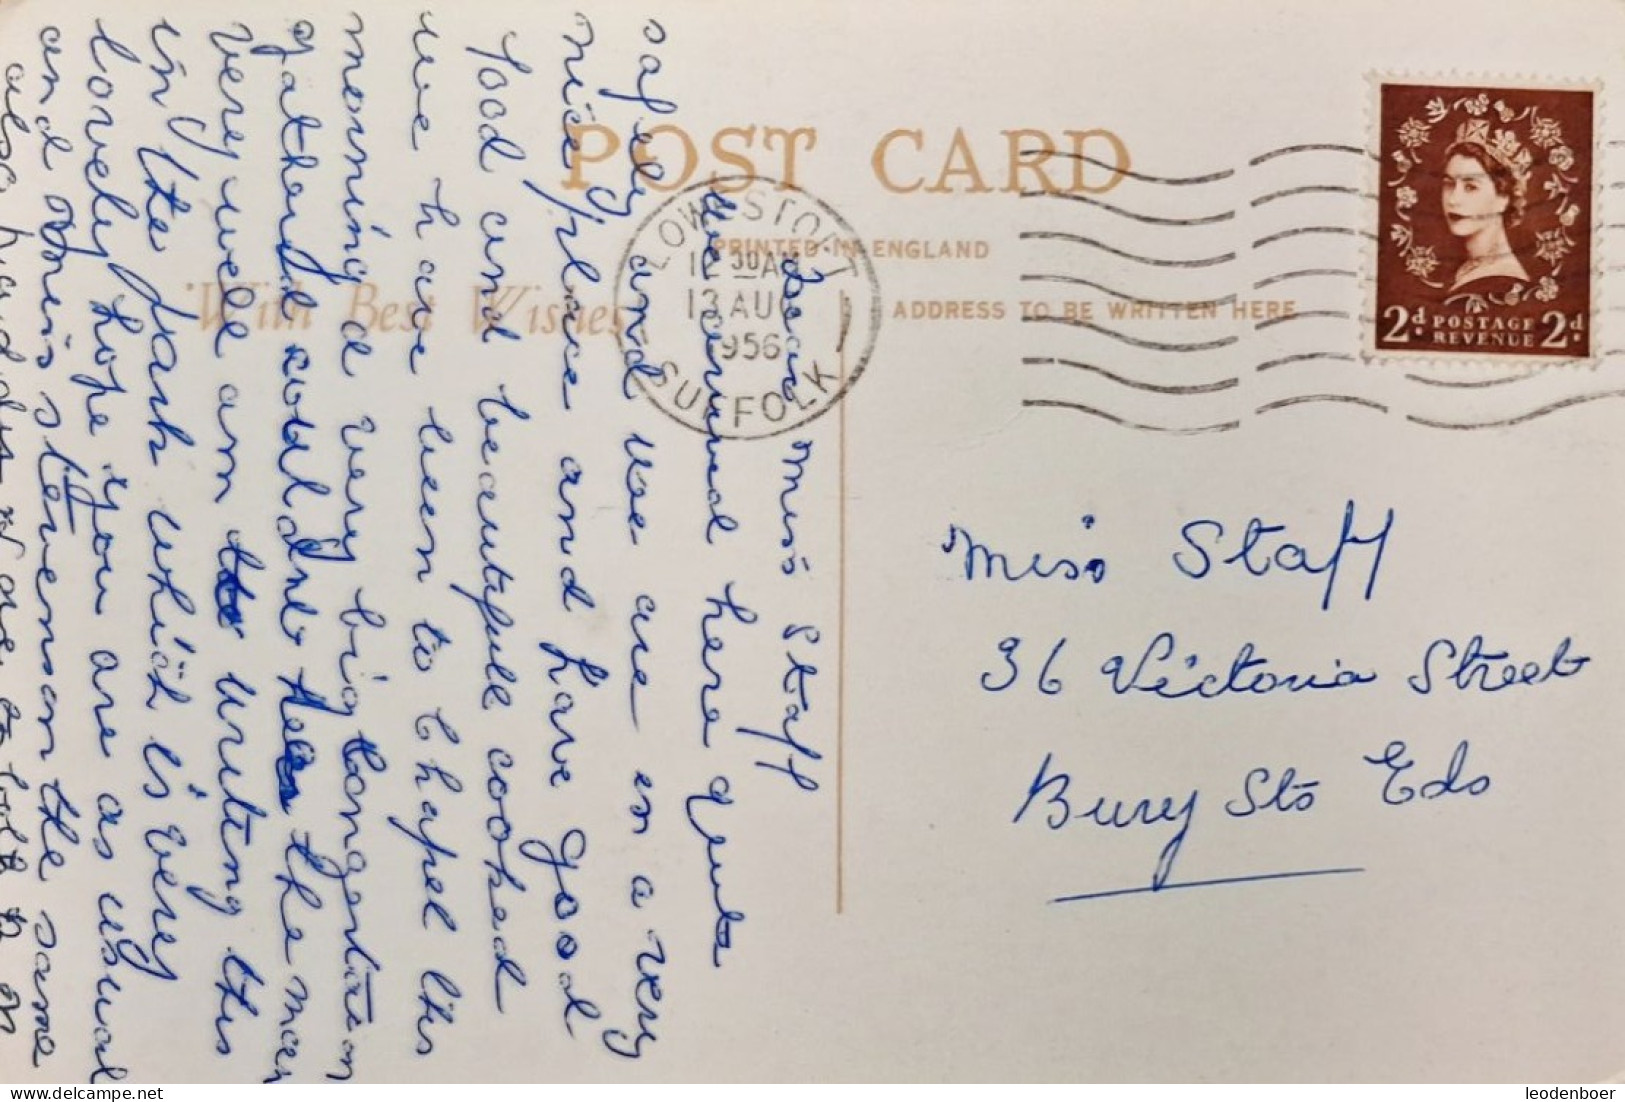 POST CARD
With Best Wishes
PRINTED IN ENGLAND
ADDRESS TO BE WRITTEN HERE
LOWESTOFT
12 30 AM
13 AUG
1956
SUFFOLK
2d POSTAGE REVENUE 2d
Miss Staff
36 Victoria Street
Bury Sts Eds
Dear Miss Staff
we arrived here quite
safely and we are in a very
nice place and have good
food and beautifull cooked
we have been to Chapel this
morning a very big congertation
gatherd could no the man
very well am writing this
in the park which is very
lovely hope you are as usual
and Miss stevenson the same
also
leodenboer